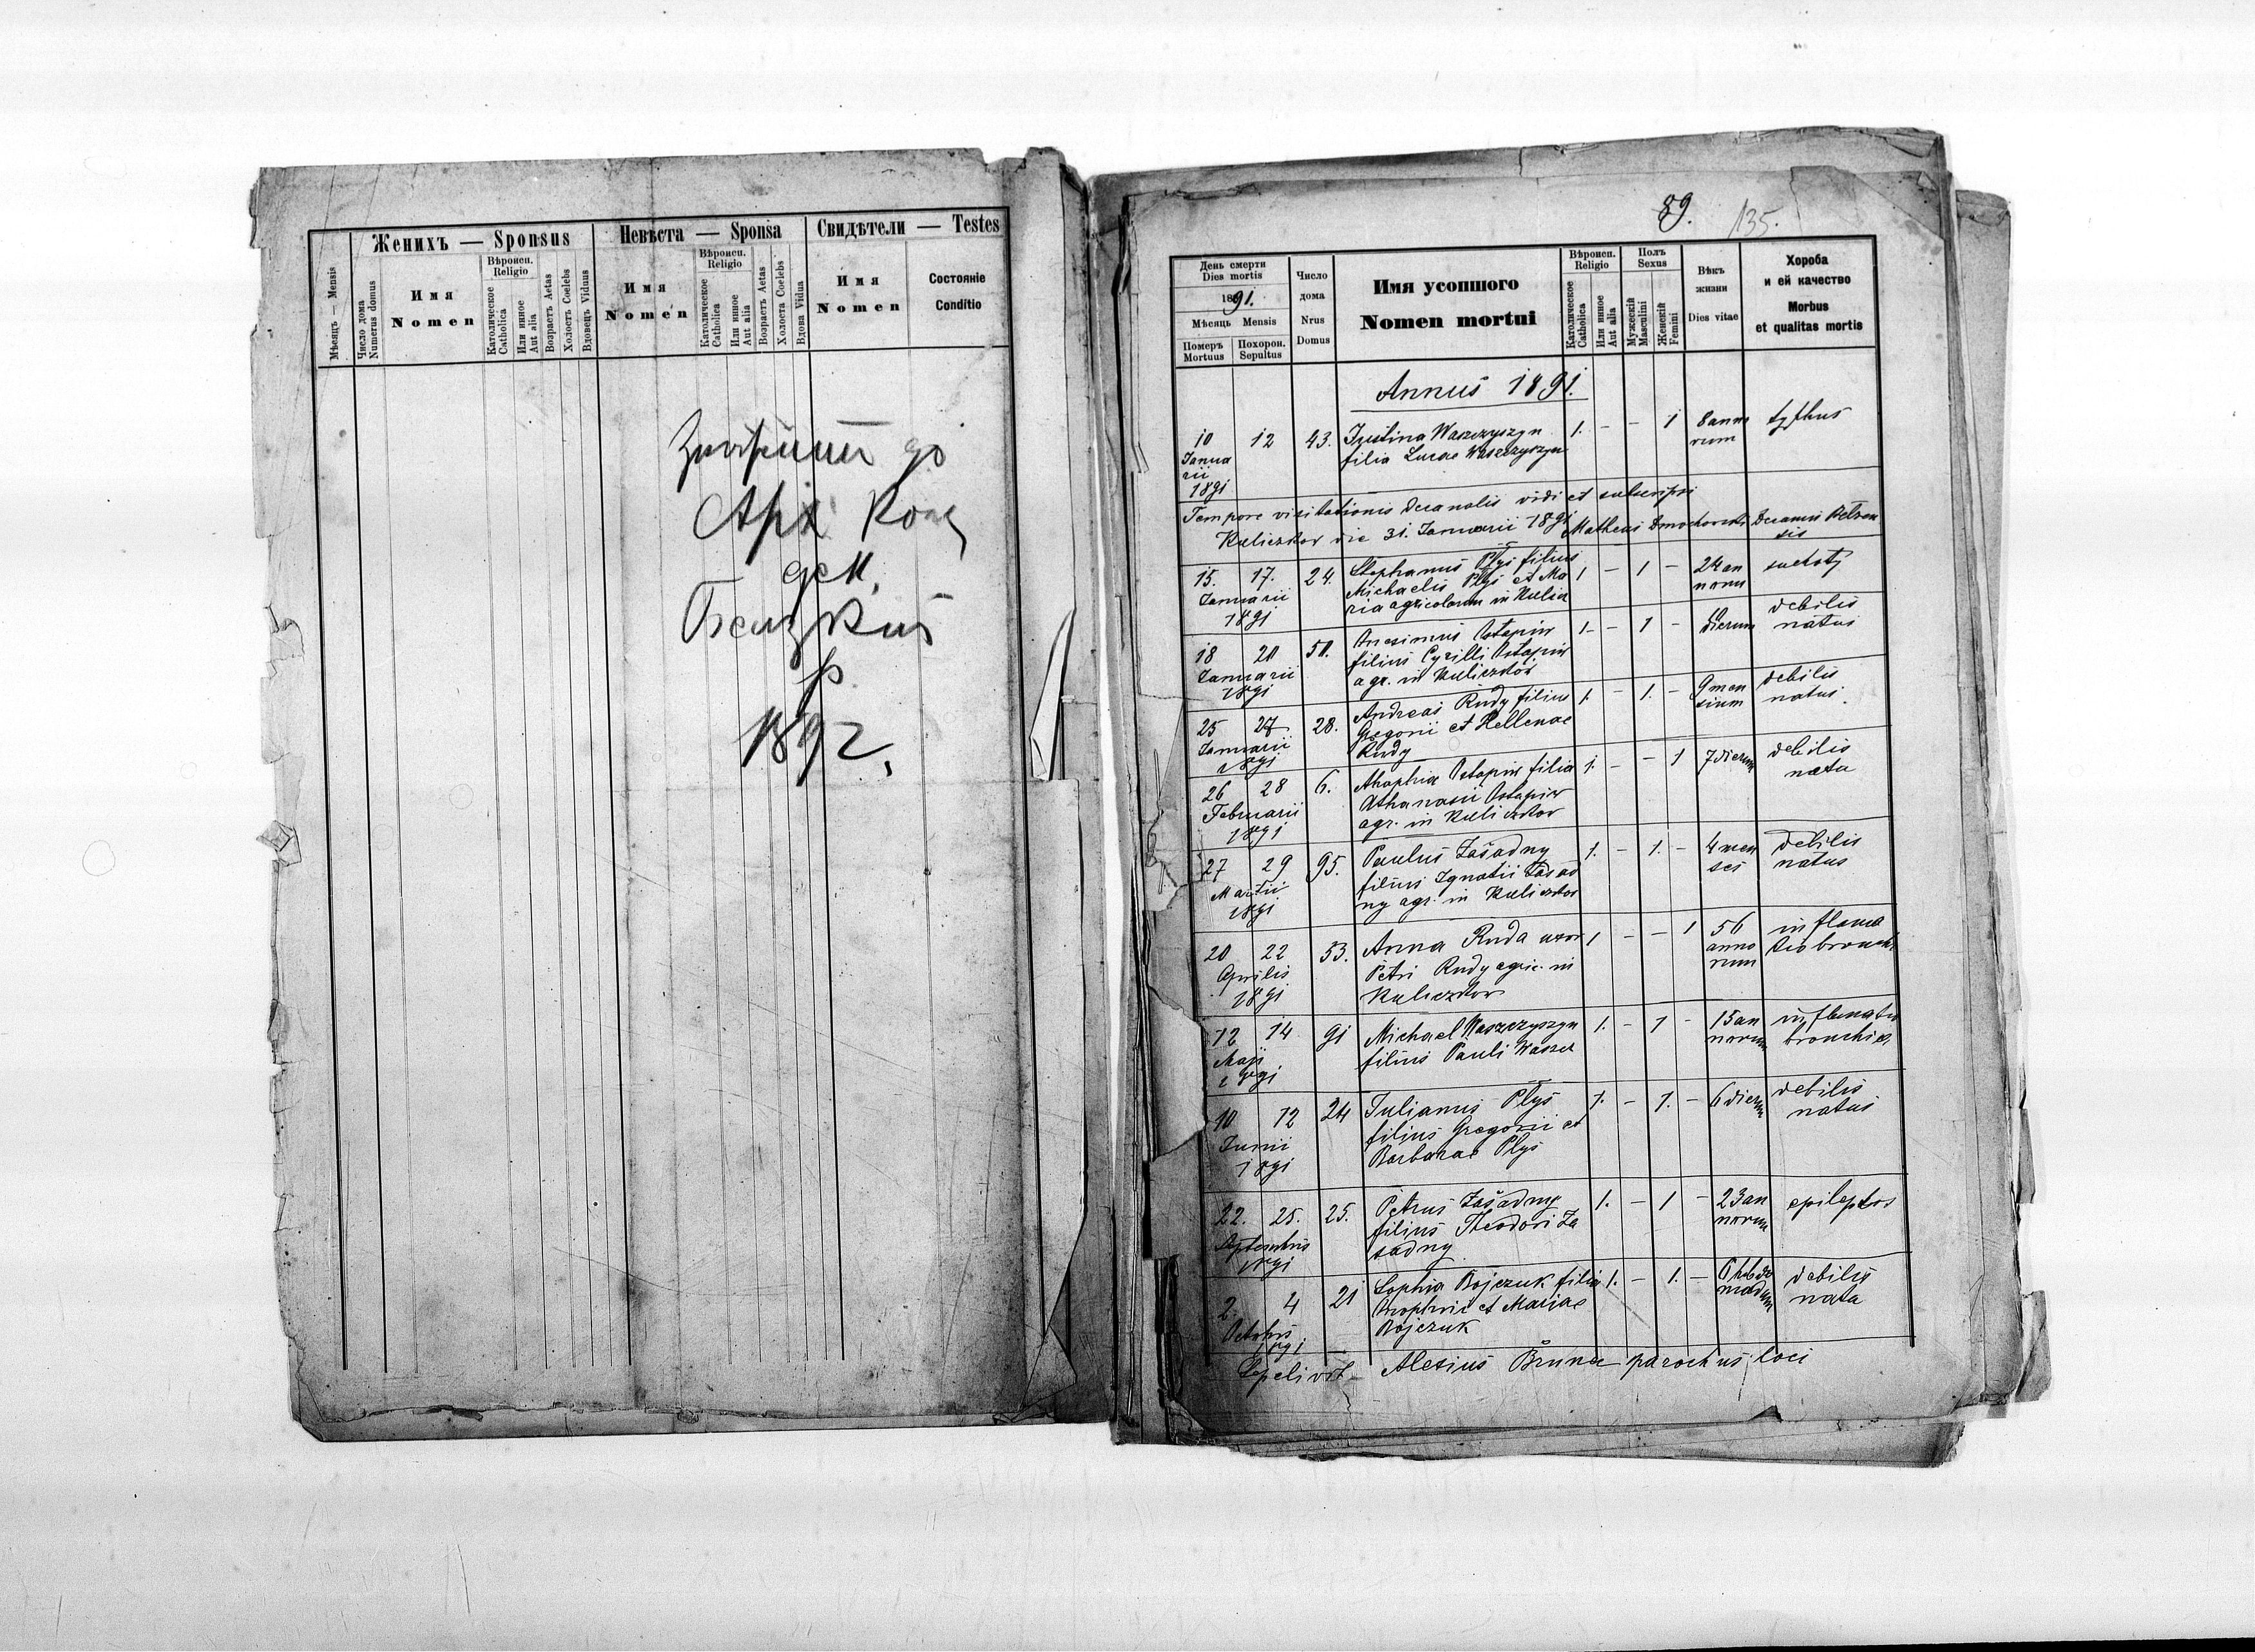 Женихъ — Sponsus
Невѣста — Sponsa
Свидѣтели — Testes
Мѣсяць — Mensis
Число дома
Numerus domus
Имя
Nomen
Вѣроисп.
Religio
Католическое
Catholica
Или инное
Aut alia
Возрастъ Aetas
Холостъ Coelebs
Вдовецъ Viduus
Имя
Nomen
Вѣроисп.
Religio
Католическое
Catholica
Или инное
Aut alia
Возрастъ Aetas
Холоста Coelebs
Вдова Vidua
Имя
Nomen
Состояніе
Conditio
до
дек.
1892.
89. 135.
День смерти
Dies mortis
1891.
Мѣсяць Mensis
Померъ
Mortuus
Похорон.
Sepultus
Число
дома
Nrus
Domus
Имя усопшого
Nomen mortui
Вѣроисп.
Religio
Католическое
Catholica
Или инное
Aut alia
Полъ
Sexus
Мужескій
Masculini
Женскій
Femini
Вѣкъ
жизни
Dies vitae
Хороба
и ей качество
Morbus
et qualitas mortis
Annus 1891.
10 12 43. Justina Waszczyszyn 1. - - 1 8 anno tyfhus
Janua filia Lucae Waszczyszyn rum
rii
1891
Tempore visitationis decanalis vidi et subscripsi
Kuliczkow die 31. Januarii 1891 Decanus Belzen
sis
15. 17. 24. Stephanus Plys filius 1 - 1 - 24 an suchoty
Januarii Michaelis Plys et Ma norum
1891 ria agricolarum in Kulicz
18 20 50. Onesimus Ostapiw 1- - 1 - dierum debilis
Januarii filius Cyrilli Ostapiw natus
1891 agr. in Kuliczkow
25 27 28. Andreas Rudy filius 1. - 1. - 9 men debilis
Januarii Gregorii et Hellenae sium natus.
1891 Rudy
26 28 6. Ostapiw filia 1. - - 1 7 dierum debilis
Februarii Athanasii Ostapiw nata
1891 agr. in Kuliczkow
27 29 95. Paulus Zasadny 1. - 1. - 4 men debilis
Martii filius Ignatii Zasad ses natus
1891 ny agr. in Kuliczkow
20 22 53. Anna Ruda uxor 1 - - 1 56 inflama
Aprilis Petri Rudy agric. in anno tio bronchi
1891 Kuliczkow rum
12 14 91 Michael Waszczyszyn 1. - 1 - 15 an
Maji filius Pauli Waszcz norum
1891
10 12 24 Julianus Plys 1. - 1. - 6 dierum debilis
Junii filius Gregorii et natus
1891 Barbarae Plys
22. 25. 25. Petrus Zasadny 1. - 1 - 23 an
Septembris filius Theodori Za norum
1891 sadny
2. 4 21 Sophia Bojczuk filia 1. - 1. - 6 hebdo debilis
Octobris Onophrii et Mariae madum nata
1891. Bojczuk
Sepelivit Alexius parochus loci